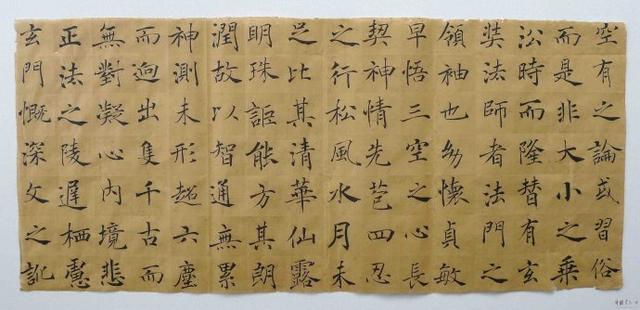 空有之論或習俗
而是非大小之乘
㳂時而隆替有玄
奘法師者法門之
領袖也幼懷貞敏
早悟三空之心長
契神情先苞四忍
之行松風水月未
足比其清華仙露
明珠詎能方其朗
潤故以智通無累
神測未形超六塵
而迥出隻千古而
無對凝心內境悲
正法之陵遲栖慮
玄門慨深文之訛